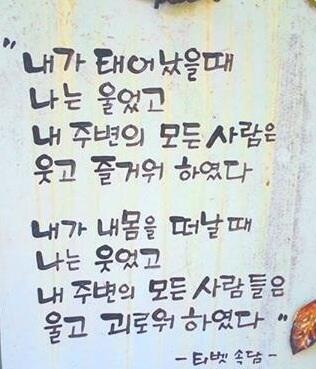 "내가 태어났을때
나는 울었고
내 주변의 모든 사람은
웃고 즐거워 하였다
내가 내몸을 떠날때
나는 웃었고
내 주변의 모든 사람들은
울고 괴로워 하였다"
- 티벳 속담 -